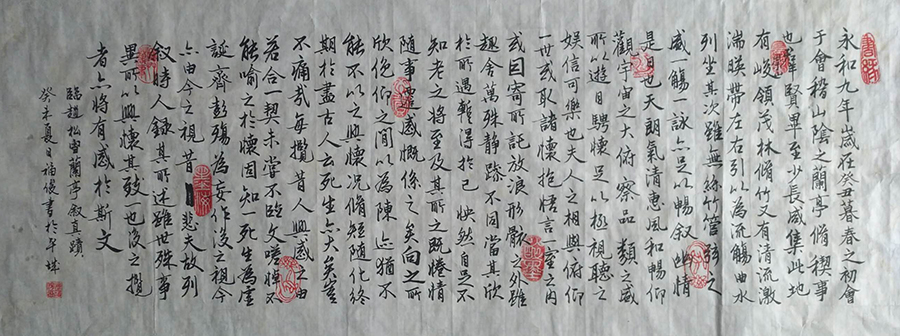 永和九年歲在癸丑暮春之初會
于會稽山陰之蘭亭脩稧事
也羣賢畢至少長咸集此地
有峻領茂林脩竹又有清流激
湍暎帶左右引以為流觴曲水
列坐其次雖無絲竹管弦之
盛一觴一詠亦足以暢叙幽情
是日也天朗氣清惠風和暢仰
觀宇宙之大俯察品類之盛
所以遊目騁懷足以極視聽之
娛信可樂也夫人之相與俯仰
一世或取諸懷抱悟言一室之内
或因寄所託放浪形骸之外雖
趣舍萬殊靜躁不同當其欣
於所遇暫得於己快然自足不
知老之將至及其所之既惓情
隨事遷感慨係之矣向之所
欣俛仰之間以為陳迹猶不
能不以之興懷况脩短隨化終
期於盡古人云死生亦大矣豈
不痛哉每攬昔人興感之由
若合一契未嘗不臨文嗟悼不
能喻之於懷固知一死生為虛
誕齊彭殤為妄作後之視今
亦由今之視昔悲夫故列
叙時人録其所述雖世殊事
異所以興懷其致一也後之攬
者亦將有感於斯文
臨趙松雪蘭亭叙真蹟
癸未夏日福優書於平城